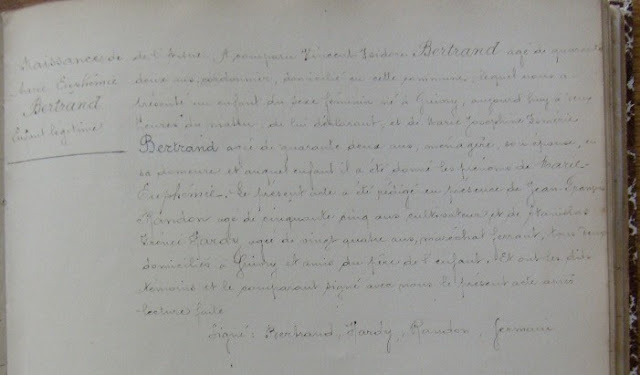 Naissance de
Marie Euphémie
Bertrand
Enfant légitime
de l'Aisne. A comparu Vincent Isidore Bertrand agé de quarante
deux ans, cordonnier, domicilié en cette commune, lequel nous a
présenté un enfant du sexe féminin né à aujourd'hui à
heures du matin, de lui déclarant, et de Marie Joséphine
Bertrand agée de quarante deux ans, ménagère, son épouse, en
sa demeure et auquel enfant il a été donné les prénoms de Marie-
Euphémie. Le présent acte a été rédigé en présence de Jean François
Randon agé de cinquante cinq ans cultivateur et de Stanislas
Hardy, agé de vingt quatre ans, maréchal ferrant, tous deux
domiciliés à et amis du père de l'enfant. Et ont les dits
témoins et le comparant signé avec nous le présent acte après
lecture faite
Signé: Bertrand, Hardy, Randon, Germain